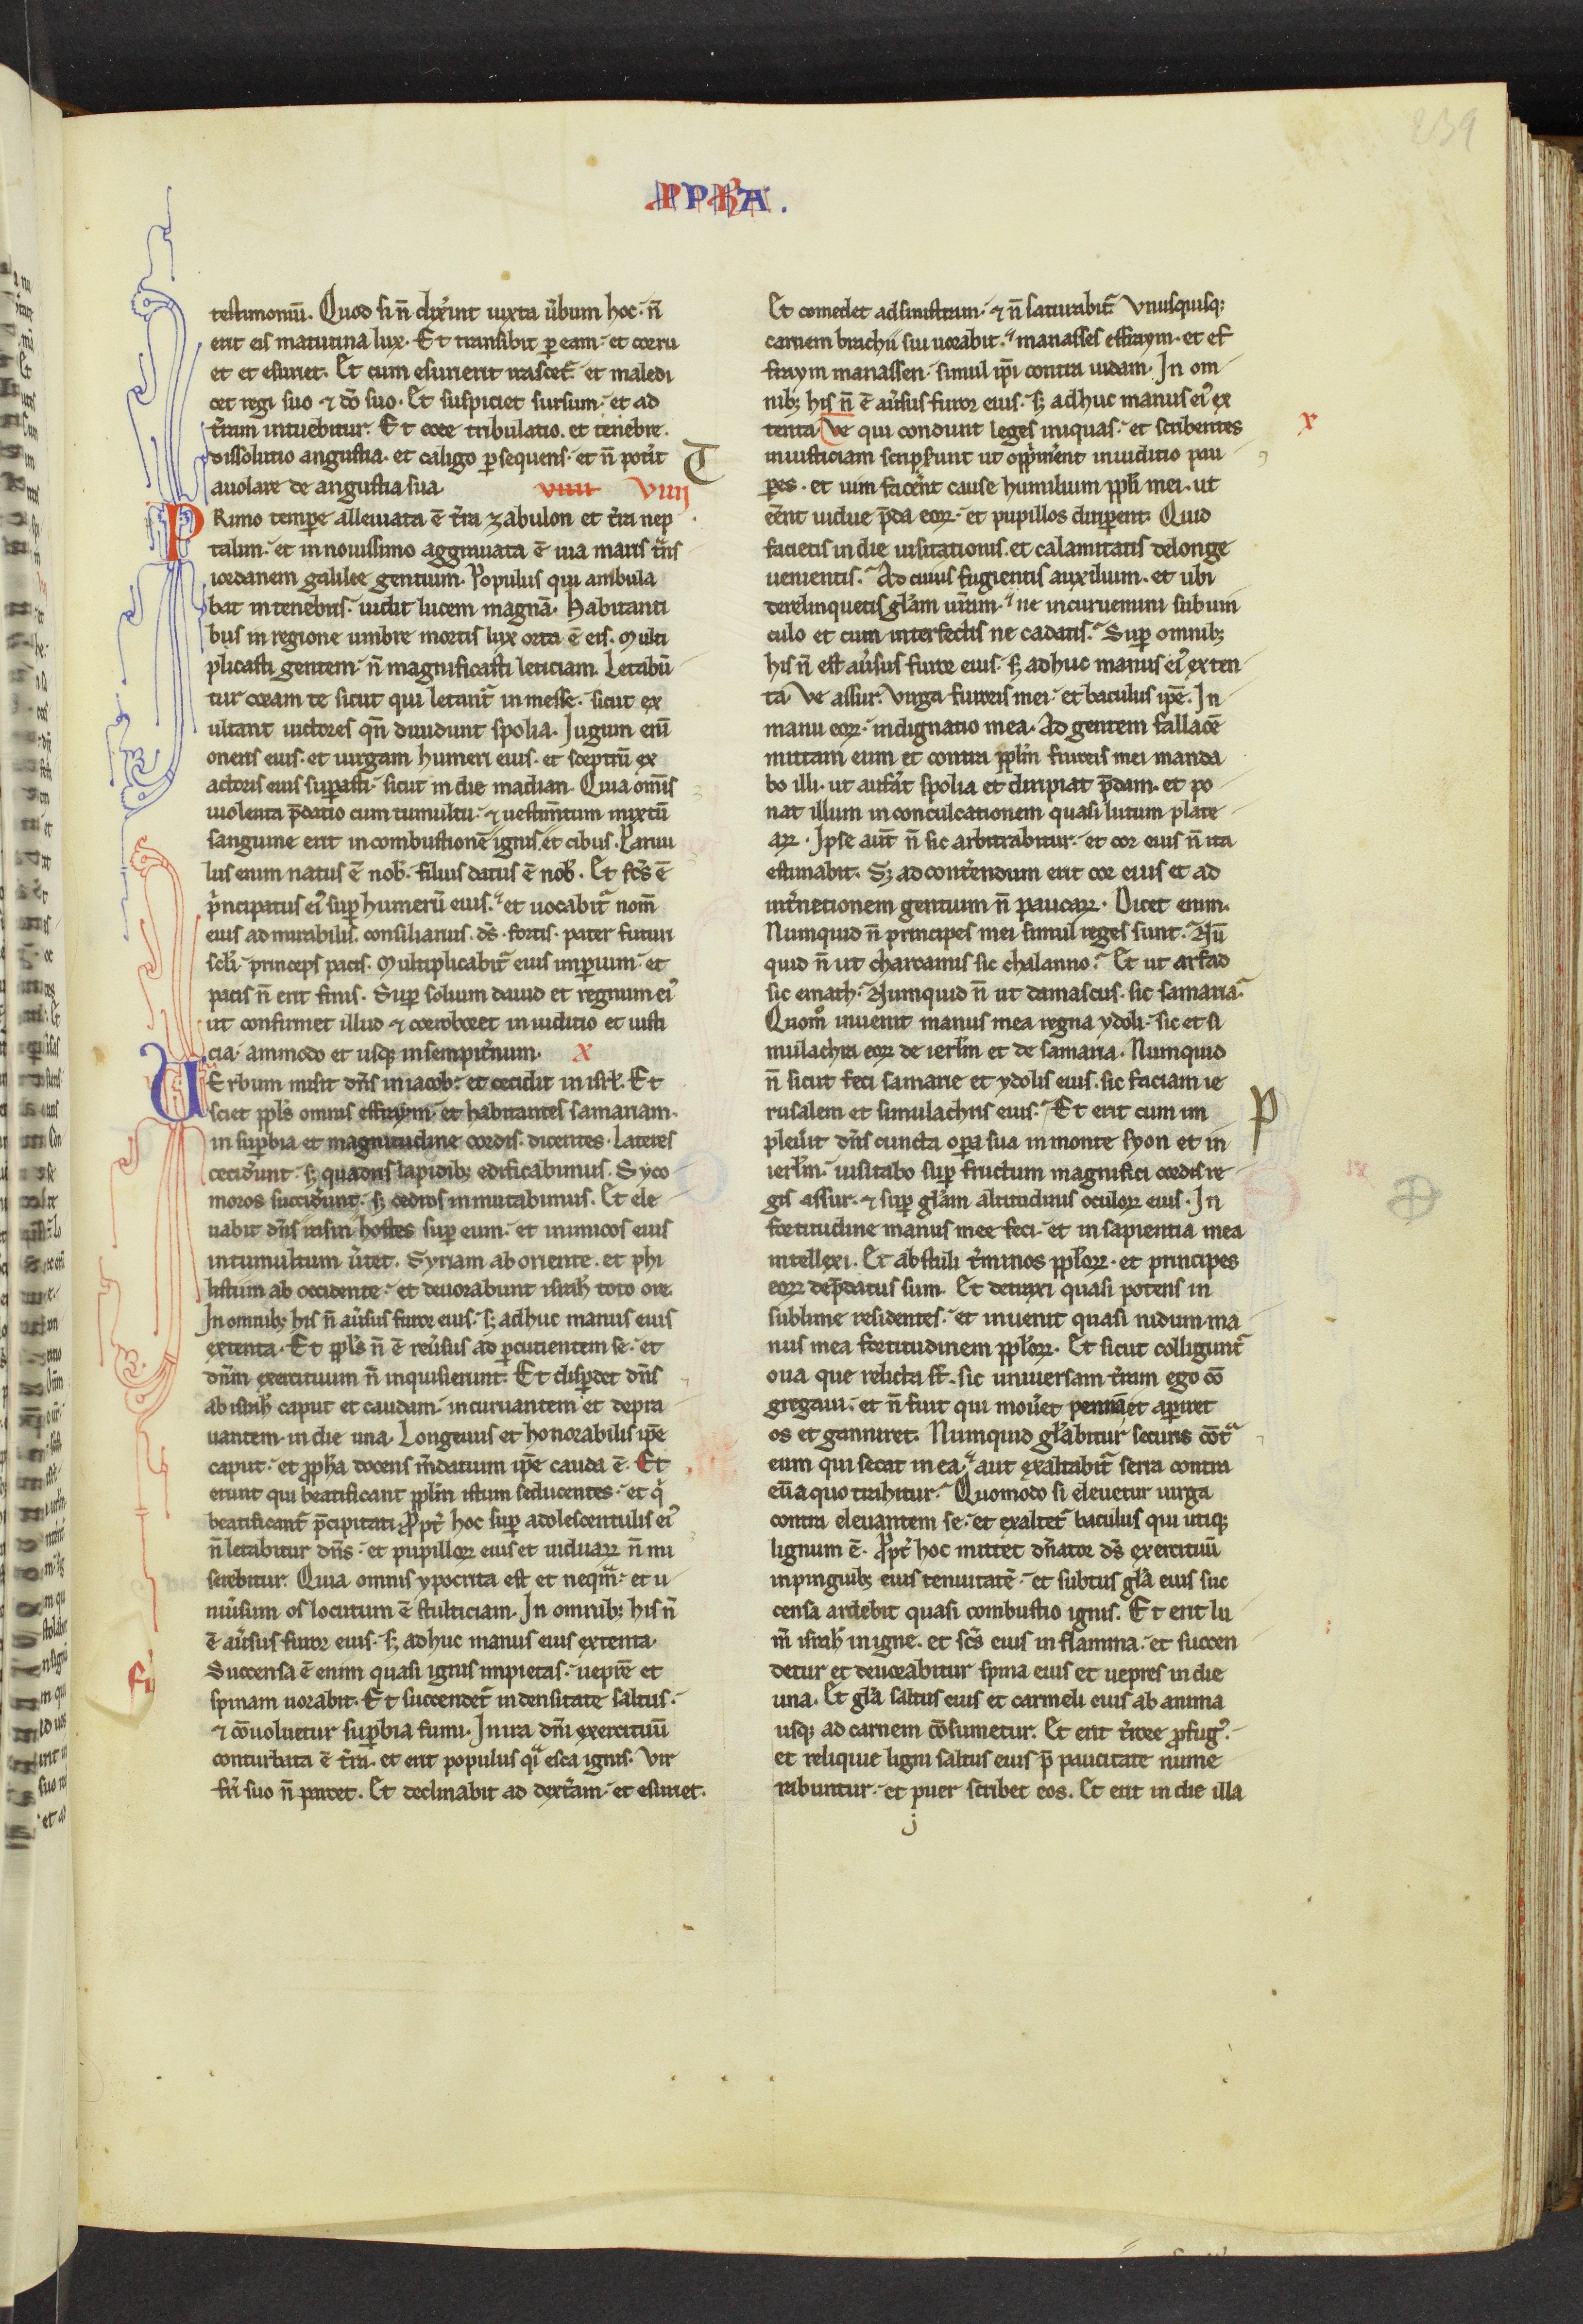 239
PPHA.
testimoniū. Quod si n̄ dixerint iuxta ūbum hoc. n̄
erit eis matutina lux. Et transibit ꝑ eam. et corru
et et esuriet. Et cum esurierit irascet᷑. et maledi
cet regi suo ⁊ dō suo. Et suspiciet sursum. et ad
t̄ram intuebitur. Et ecce tribulatio. et tenebre.
dissolutio angustia. et caligo ꝑsequens. et n̄ pot̄it
auolare de angustia sua. viiii viiij
Rimo tempore alleuiata ē t̄ra zabulon et t̄ra nep
talim. et in nouissimo aggrauata ē uia maris t̄ns
iordanem galilee gentium. Populus qui ambula
bat in tenebris. uidit lucem magnā. Habitanti
bus in regione umbre mortis lux orta ē eis. Multi
plicasti gentem. n̄ magnificasti leticiam. Letabū
tur coram te sicut qui letant᷑ in messe. sicut ex
ultant uictores qn̄ diuidunt spolia. Iugum eni᷑
oneris eius. et uirgam humeri eius. et sceptrū ex
actoris eius suꝑasti. sicut in die madian. Quia om̄is
uiolenta p̄datio cum tumultu. ⁊ uestim̄tum mixtū
sanguine erit in combustionē ignis. et cibus. Paruu
lus enim natus ē nob̄. filius datus ē nob̄. Et fc̄s ē
p̄ncipatus ei᷒ suꝑ humerū eius. et uocabit᷑ nom̄
eius admirabilis. consiliarius. ds̄. fortis. pater futuri
sc̄li. princeps pacis. Multiplicabit᷑ eius imꝑium. et
pacis n̄ erit finis. Suꝑ solium dauid et regnum ei᷒
ut confirmet illud ⁊ corroboret in iudicio et iusti
cia. ammodo et usqꝫ in sempit̄num. x
UErbum misit dn̄s in iacob. et cecidit in isrł. Et
sciet ppl̄s omnis effraym. et habitantes samariam.
in suꝑbia et magnitudine cordis. dicentes. Lateres
cecid̄unt. sꝫ quadris lapidibꝫ edificabimus. Syco
moros succid̄unt. sꝫ cedros inmutabimus. Et ele
uabit dn̄s rasin hostes suꝑ eum. et inimicos eius
in tumultum ūtet. Syriam ab oriente. et phi
listiim ab occidente. et deuorabunt israh̄l toto ore.
In omnibꝫ his n̄ aūsus furor eius. sꝫ adhuc manus eius
extenta. Et ppl̄s n̄ ē reūsus ad ꝑcutientem se. et
dn̄m exercituum n̄ inquisierunt. Et disꝑdet dn̄s
ab israh̄l caput et caudam. incuruantem et depra
uantem. in die una. Longeuus et honorabilis ip̄e
caput. et ꝓph̄a docens m̄datium ip̄e cauda ē. Et
erunt qui beatificant ppl̄m istum seducentes. et qⁱ
beatificant᷑ p̄cipitati. Ꝓpt̄ hoc suꝑ adolescentulis ei᷒
n̄ letabitur dn̄s. et pupilloꝝ eius et uiduaꝝ n̄ mi
serebitur. Quia omnis ypocrita est et neqͣm. et u
niūsum os locutum ē stulticiam. In omnibꝫ his n̄
ē aūsus furor eius. sꝫ adhuc manus eius extenta.
Succensa ē enim quasi ignis impietas. ueprē et
spinam uorabit. Et succendet᷑ in densitate saltus.
⁊ cōuoluetur suꝑbia fumi. In ira dn̄i exercituū
conturbata ē t̄ra. et erit populus qͣi esca ignis. Vir
fr̄i suo n̄ parcet. Et declinabit ad dext̄am. et esuriet.
Et comedet ad sinistram. ⁊ n̄ saturabit᷑. Vnusquisqꝫ
carnem brachii sui uorabit. manasses effraym. et ef
fraym manassen. simul ip̄i contra iudam. In om
nibꝫ his n̄ ē aūsus furor eius. sꝫ adhuc manus ei᷒ ex
tenta. Ve qui condunt leges iniquas. et scribentes x
iniusticiam scripserunt ut opp̄merent in iudicio pau
ꝑes. et uim facerent cause humilium ppl̄i mei. ut
eēnt uidue p̄da eoꝝ. et pupillos diriꝑent. Quid
facietis in die uisitationis. et calamitatis de longe
uenientis. Ad cuius fugientis auxilium. et ubi
derelinquetis gl̄am ur̄am. ne incuruemini sub uin
culo et cum interfectis ne cadatis. Suꝑ omnibꝫ
his n̄ est aūsus furor eius. sꝫ adhuc manus ei᷒ exten
ta. Ve assur. Virga furoris mei. et baculus ip̄e. In
manu eoꝝ. indignatio mea. Ad gentem fallacē
mittam eum et contra ppl̄m furoris mei manda
bo illi. ut auferat spolia et diripiat p̄dam. et po
nat illum in conculcationem quasi lutum plate
aꝝ. Ipse aut̄ n̄ sic arbitrabitur. et cor eius n̄ ita
estimabit. Sꝫ ad cont̄endum erit cor eius et ad
int̄netionem gentium n̄ paucaꝝ. Dicet enim.
Numquid n̄ principes mei simul reges sunt. Nū
quid n̄ ut charcamis sic chalanno. Et ut arfad
sic emath. Numquid n̄ ut damascus. sic samaria.
Quom̊ inuenit manus mea regna ydoli. sic et si
mulachra eoꝝ de ierl̄m et de samaria. Numquid
n̄ sicut feci samarie et ydolis eius. sic faciam ie
rusalem et simulachris eius. Et erit cum im P
pleūit dn̄s cuncta oꝑa sua in monte syon et in
ierl̄m. uisitabo suꝑ fructum magnifici cordis re
gis assur. ⁊ suꝑ gl̄am altitudinis oculoꝝ eius. In
fortitudine manus mee feci. et in sapientia mea
intellexi. Et abstuli t̄minos ppl̄oꝝ. et principes
eoꝝ dep̄datus sum. Et detraxi quasi potens in
sublime residentes. et inuenit quasi nidum ma
nus mea fortitudinem ppl̄oꝝ. Et sicut colligunt᷑
oua que relicta st̄. sic uniuersam t̄ram ego cō
gregaui. et n̄ fuit qui moūet pennā et aꝑiret
os et ganniret. Numquid gl̄abitur securis cōtͣ
eum qui secat in ea. aut exaltabit᷑ serra contra
eū a quo trahitur. Quomodo si eleuetur uirga
contra eleuantem se. et exaltet᷑ baculus qui utiqꝫ
lignum ē. Ꝓpt̄ hoc mittet dn̄ator ds̄ exercituū
in pinguibꝫ eius tenuitatē. et subtus gl̄a eius suc
censa ardebit quasi combustio ignis. Et erit lu
m̄ israh̄l in igne. et sc̄s eius in flamma. et succen
detur et deuorabitur spina eius et uepres in die
una. Et gl̄a saltus eius et carmeli eius ab anima
usqꝫ ad carnem cōsumetur. Et erit t̄rore ꝓfug᷒.
et reliquie ligni saltus eius p̄ paucitate nume
rabuntur. et puer scribet eos. Et erit in die illa